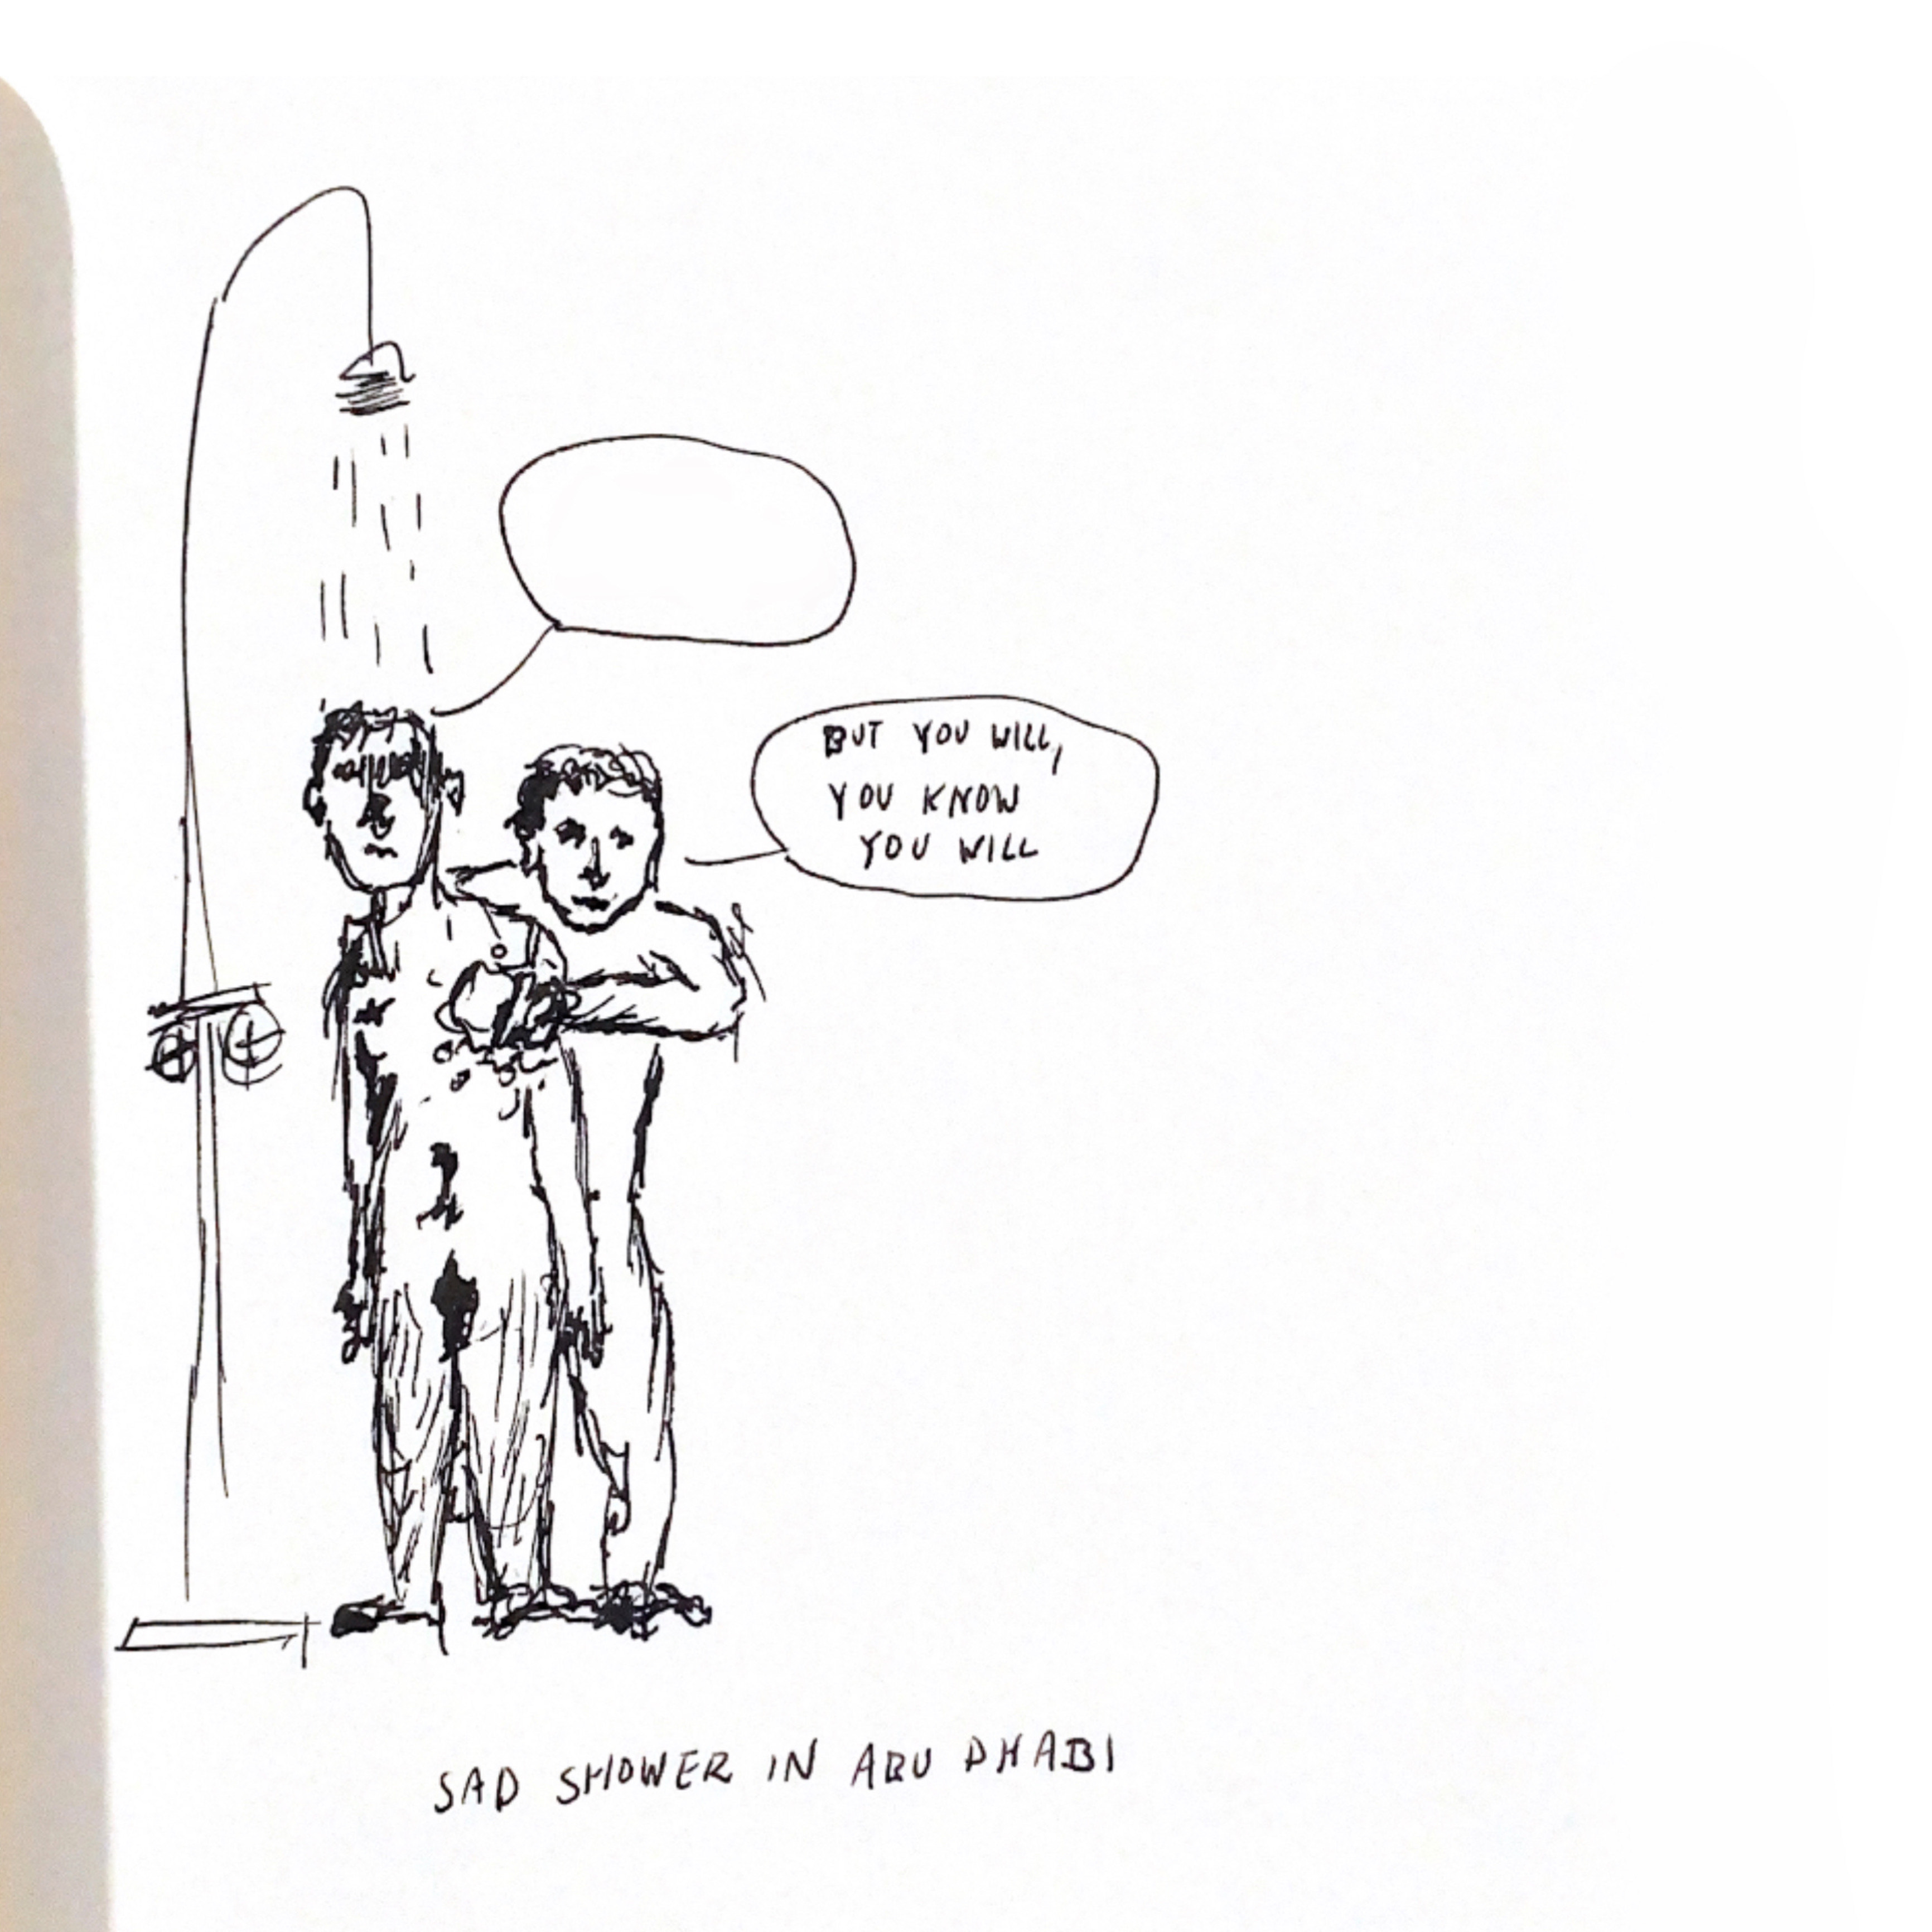 BUT YOU WILL,
YOU KNOW
YOU WILL
SAD SHOWER IN ABU DHABI